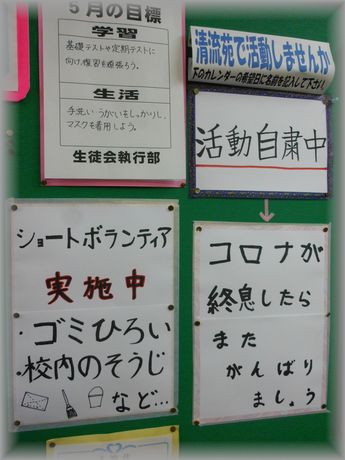 5月の目標
学習
基礎テストや定期テストに
向け、復習を頑張ろう。
生活
手洗い・うがいをしっかりし、
マスクを着用しよう。
生徒会執行部
清流苑で活動しませんか
下のカレンダーの希望日に名前を記入して下さい!
活動自粛中
ショートボランティア
実施中
・ゴミひろい
・校内のそうじ
など…
コロナが
終息したら
また
がんばり
ましょう